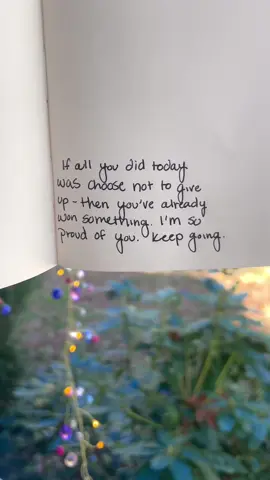 If all you did today
was choose not to give
up - then you've already
won something. I'm so
proud of you. Keep going.